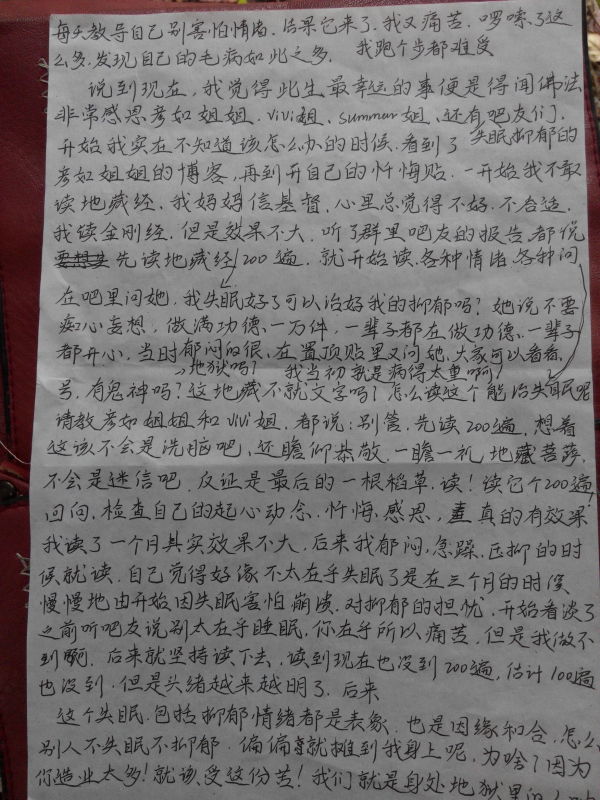 每天教导自己别害怕情绪,结果它来了,我又痛苦,啰嗦了这
么多,发现自己的毛病如此之多,我跑个步都难受
说到现在,我觉得此生最幸运的事便是得闻佛法
非常感恩考如姐姐,vivi姐、summer姐、还有吧友们,
开始我实在不知道该怎么办的时候,看到了失眠抑郁的
考如姐姐的博客,再到开自己的忏悔贴.一开始我不敢
读地藏经,我妈妈信基督,心里总觉得不好,不合适,
我读金刚经,但是效果不大,听了群里吧友的报告,都说
先读地藏经200遍,就开始读,各种情绪,各种问
在吧里问她,我失眠好了可以治好我的抑郁吗?她说不要
痴心妄想,做满功德、一万件,一辈子都在做功德、一辈子
都开心,当时郁闷的很,在置顶贴里又问她,大家可以看看,
地狱吗? 我当初就是病得太重啊!
号,有鬼神吗?这地藏不就文字吗?怎么读这个能治失眠呢
请教考如姐姐和vivi姐,都说:别管,先读200遍,想着
这该不会是洗脑吧,还瞻仰恭敬,一瞻一礼,地藏菩萨,
不会是迷信吧,反正是最后的一根稻草,读!读它个200遍,
回向,检查自己的起心动念,忏悔,感恩,真的有效果
我读了一个月其实效果不大,后来我郁闷,急躁,压抑的时
候就读,自己觉得好像不太在乎失眠了是在三个月的时候
慢慢地由开始因失眠害怕崩溃,对抑郁的担忧,开始看淡了
之前听吧友说别太在乎睡眠,你在乎所以痛苦,但是我做不
到啊,后来就坚持读下去,读到现在也没到200遍,估计100遍
也没到,但是头绪越来越明了,后来
这个失眠,包括抑郁情绪都是表象,也是因缘和合,怎么
别人不失眠不抑郁,偏偏就摊到我身上呢,为啥?因为
你造业太多!就该受这份苦!我们就是身处地狱里的